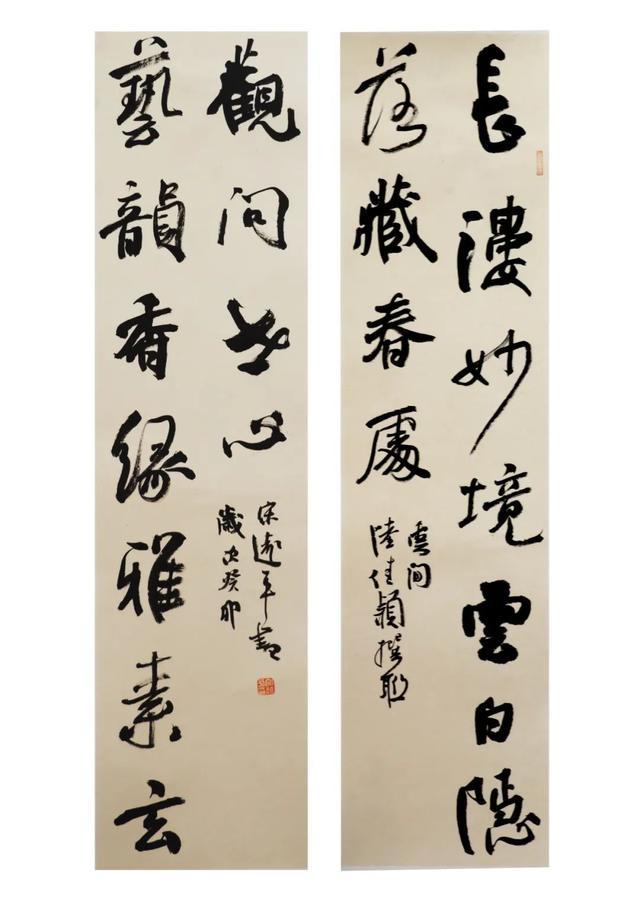 長漊妙境雲自隱
落藏春處
雲間
陸佳穎撰聯
藝韻香緣雅素玄
觀問世心
歲次癸卯
宋遠平書